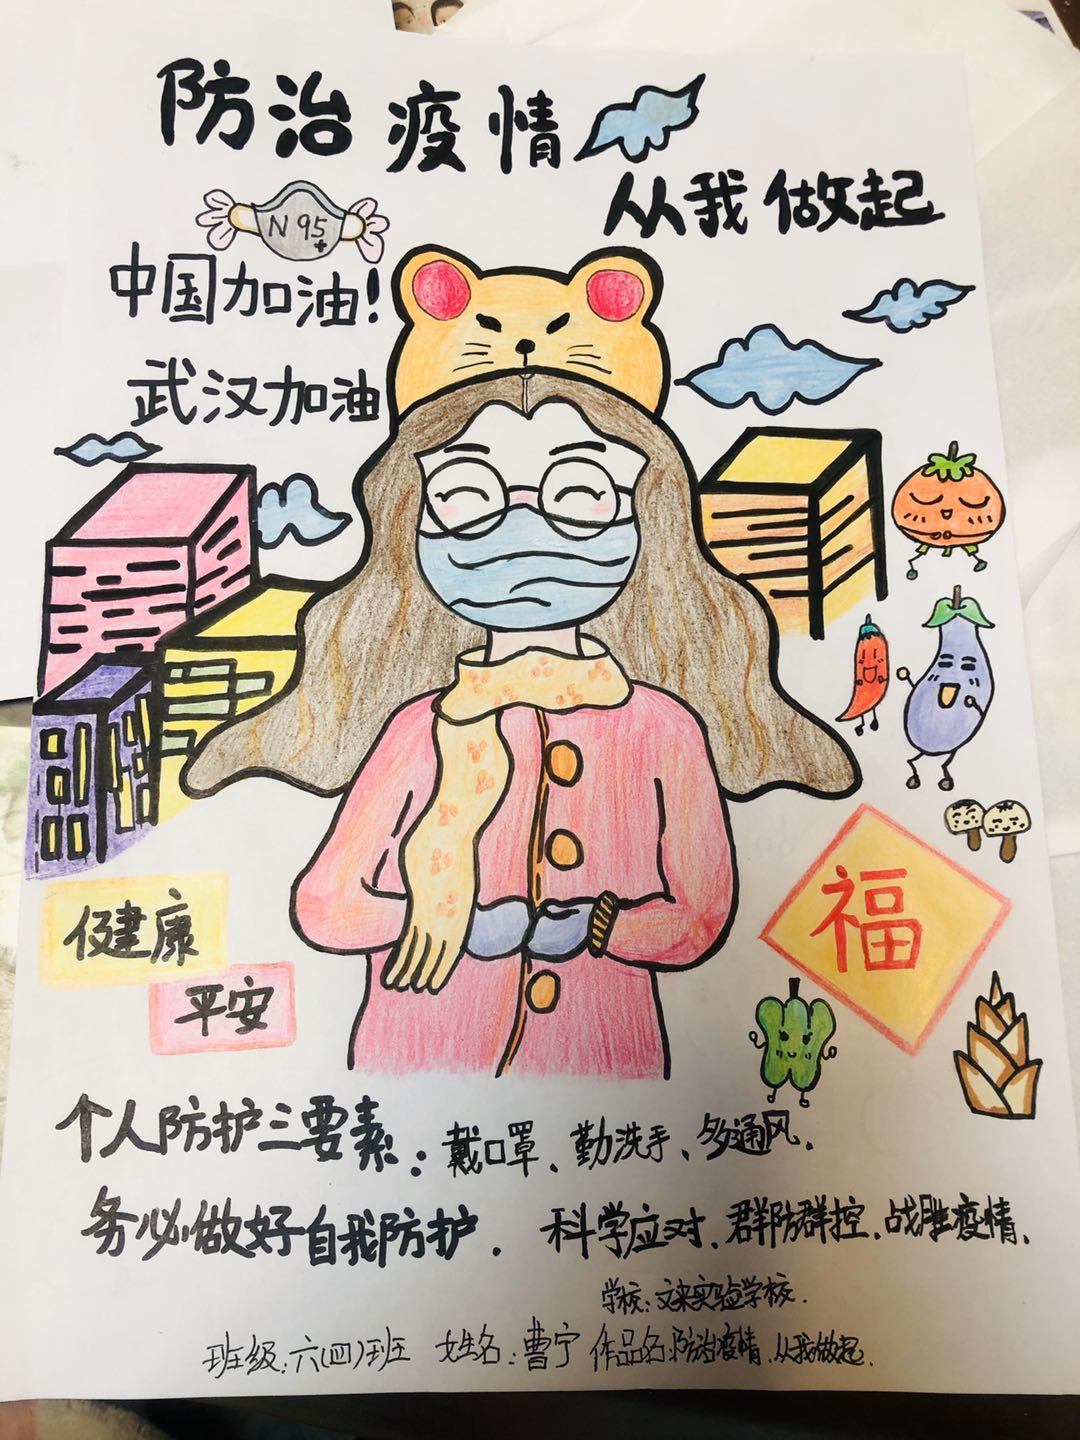 防治疫情
从我做起
N95
中国加油!
武汉加油
健康
平安
福
个人防护三要素:戴口罩、勤洗手、多通风.
务必做好自我防护. 科学应对、群防群控、战胜疫情.
学校:文来实验学校.
班级:六(四)班 姓名:曹宁 作品名:防治疫情.从我做起.